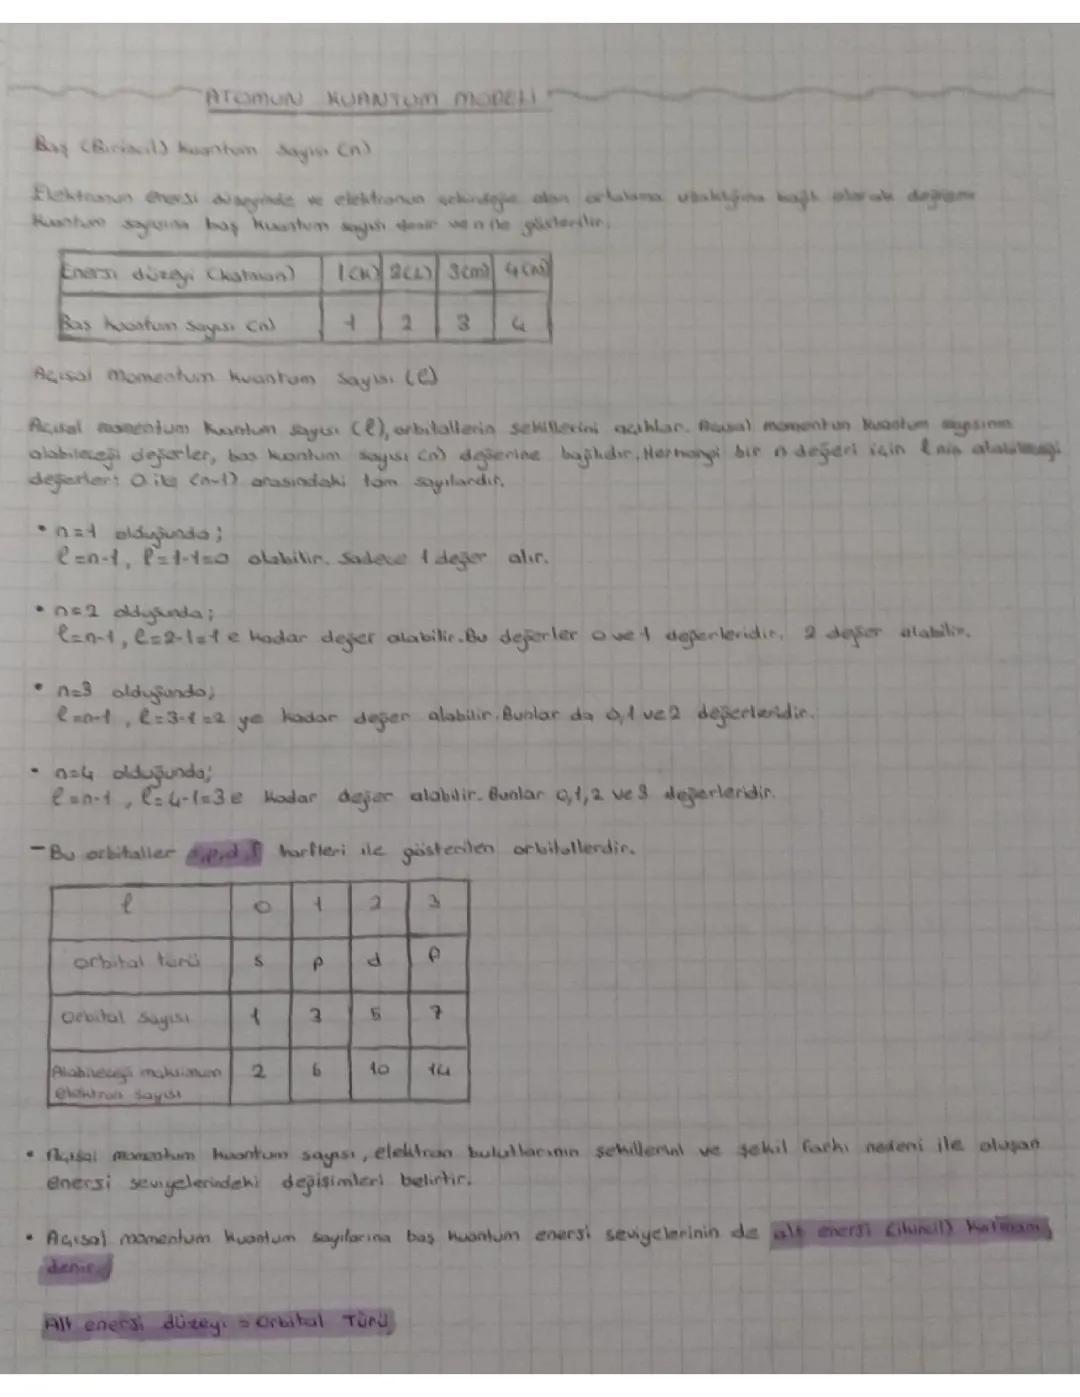 ATOMUN KUANTUM MODELİ
Baş (Birincil) kuantum sayısı (n)
Elektronun enerji düzeyinde ve elektronun çekirdeğe olan ortalama uzaklığına bağlı olarak değişen
kuantum sayısına baş kuantum sayısı denir ve n ile gösterilir.
Enerji düzeyi (katman) 1(K) 2(L) 3(m) 4(N)
Baş kuantum sayısı (n) 1 2 3 4
Açısal momentum kuantum sayısı (l)
Açısal momentum kuantum sayısı (l), orbitallerin şekillerini açıklar. Açısal momentum kuantum sayısının
alabileceği değerler, baş kuantum sayısı (n) değerine bağlıdır. Herhangi bir n değeri için l nin alabileceği
değerler: 0 ile (n-1) arasındaki tam sayılardır.
• n=1 olduğunda;
l=n-1, l=1-1=0 olabilir. Sadece 1 değer alır.
• n=2 olduğunda;
l=n-1, l=2-1=1 e kadar değer alabilir. Bu değerler 0 ve 1 değerleridir. 2 değer alabilir.
• n=3 olduğunda;
l=n-1, l=3-1=2 ye kadar değer alabilir. Bunlar da 0,1 ve 2 değerleridir.
• n=4 olduğunda;
l=n-1, l=4-1=3 e kadar değer alabilir. Bunlar 0,1,2 ve 3 değerleridir.
- Bu orbitaller s,p,d,f harfleri ile gösterilen orbitallerdir.
l 0 1 2 3
orbital türü s p d f
Orbital sayısı 1 3 5 7
Alabileceği maksimum
elektron sayısı 2 6 10 14
• Açısal momentum kuantum sayısı, elektron bulutlarının şekillerini ve şekil farkı nedeni ile oluşan
enerji seviyelerindeki değişimleri belirtir.
• Açısal momentum kuantum sayılarına baş kuantum enerji seviyelerinin de alt enerji (ikincil) katmanı
denir.
Alt enerji düzeyi = Orbital Türü